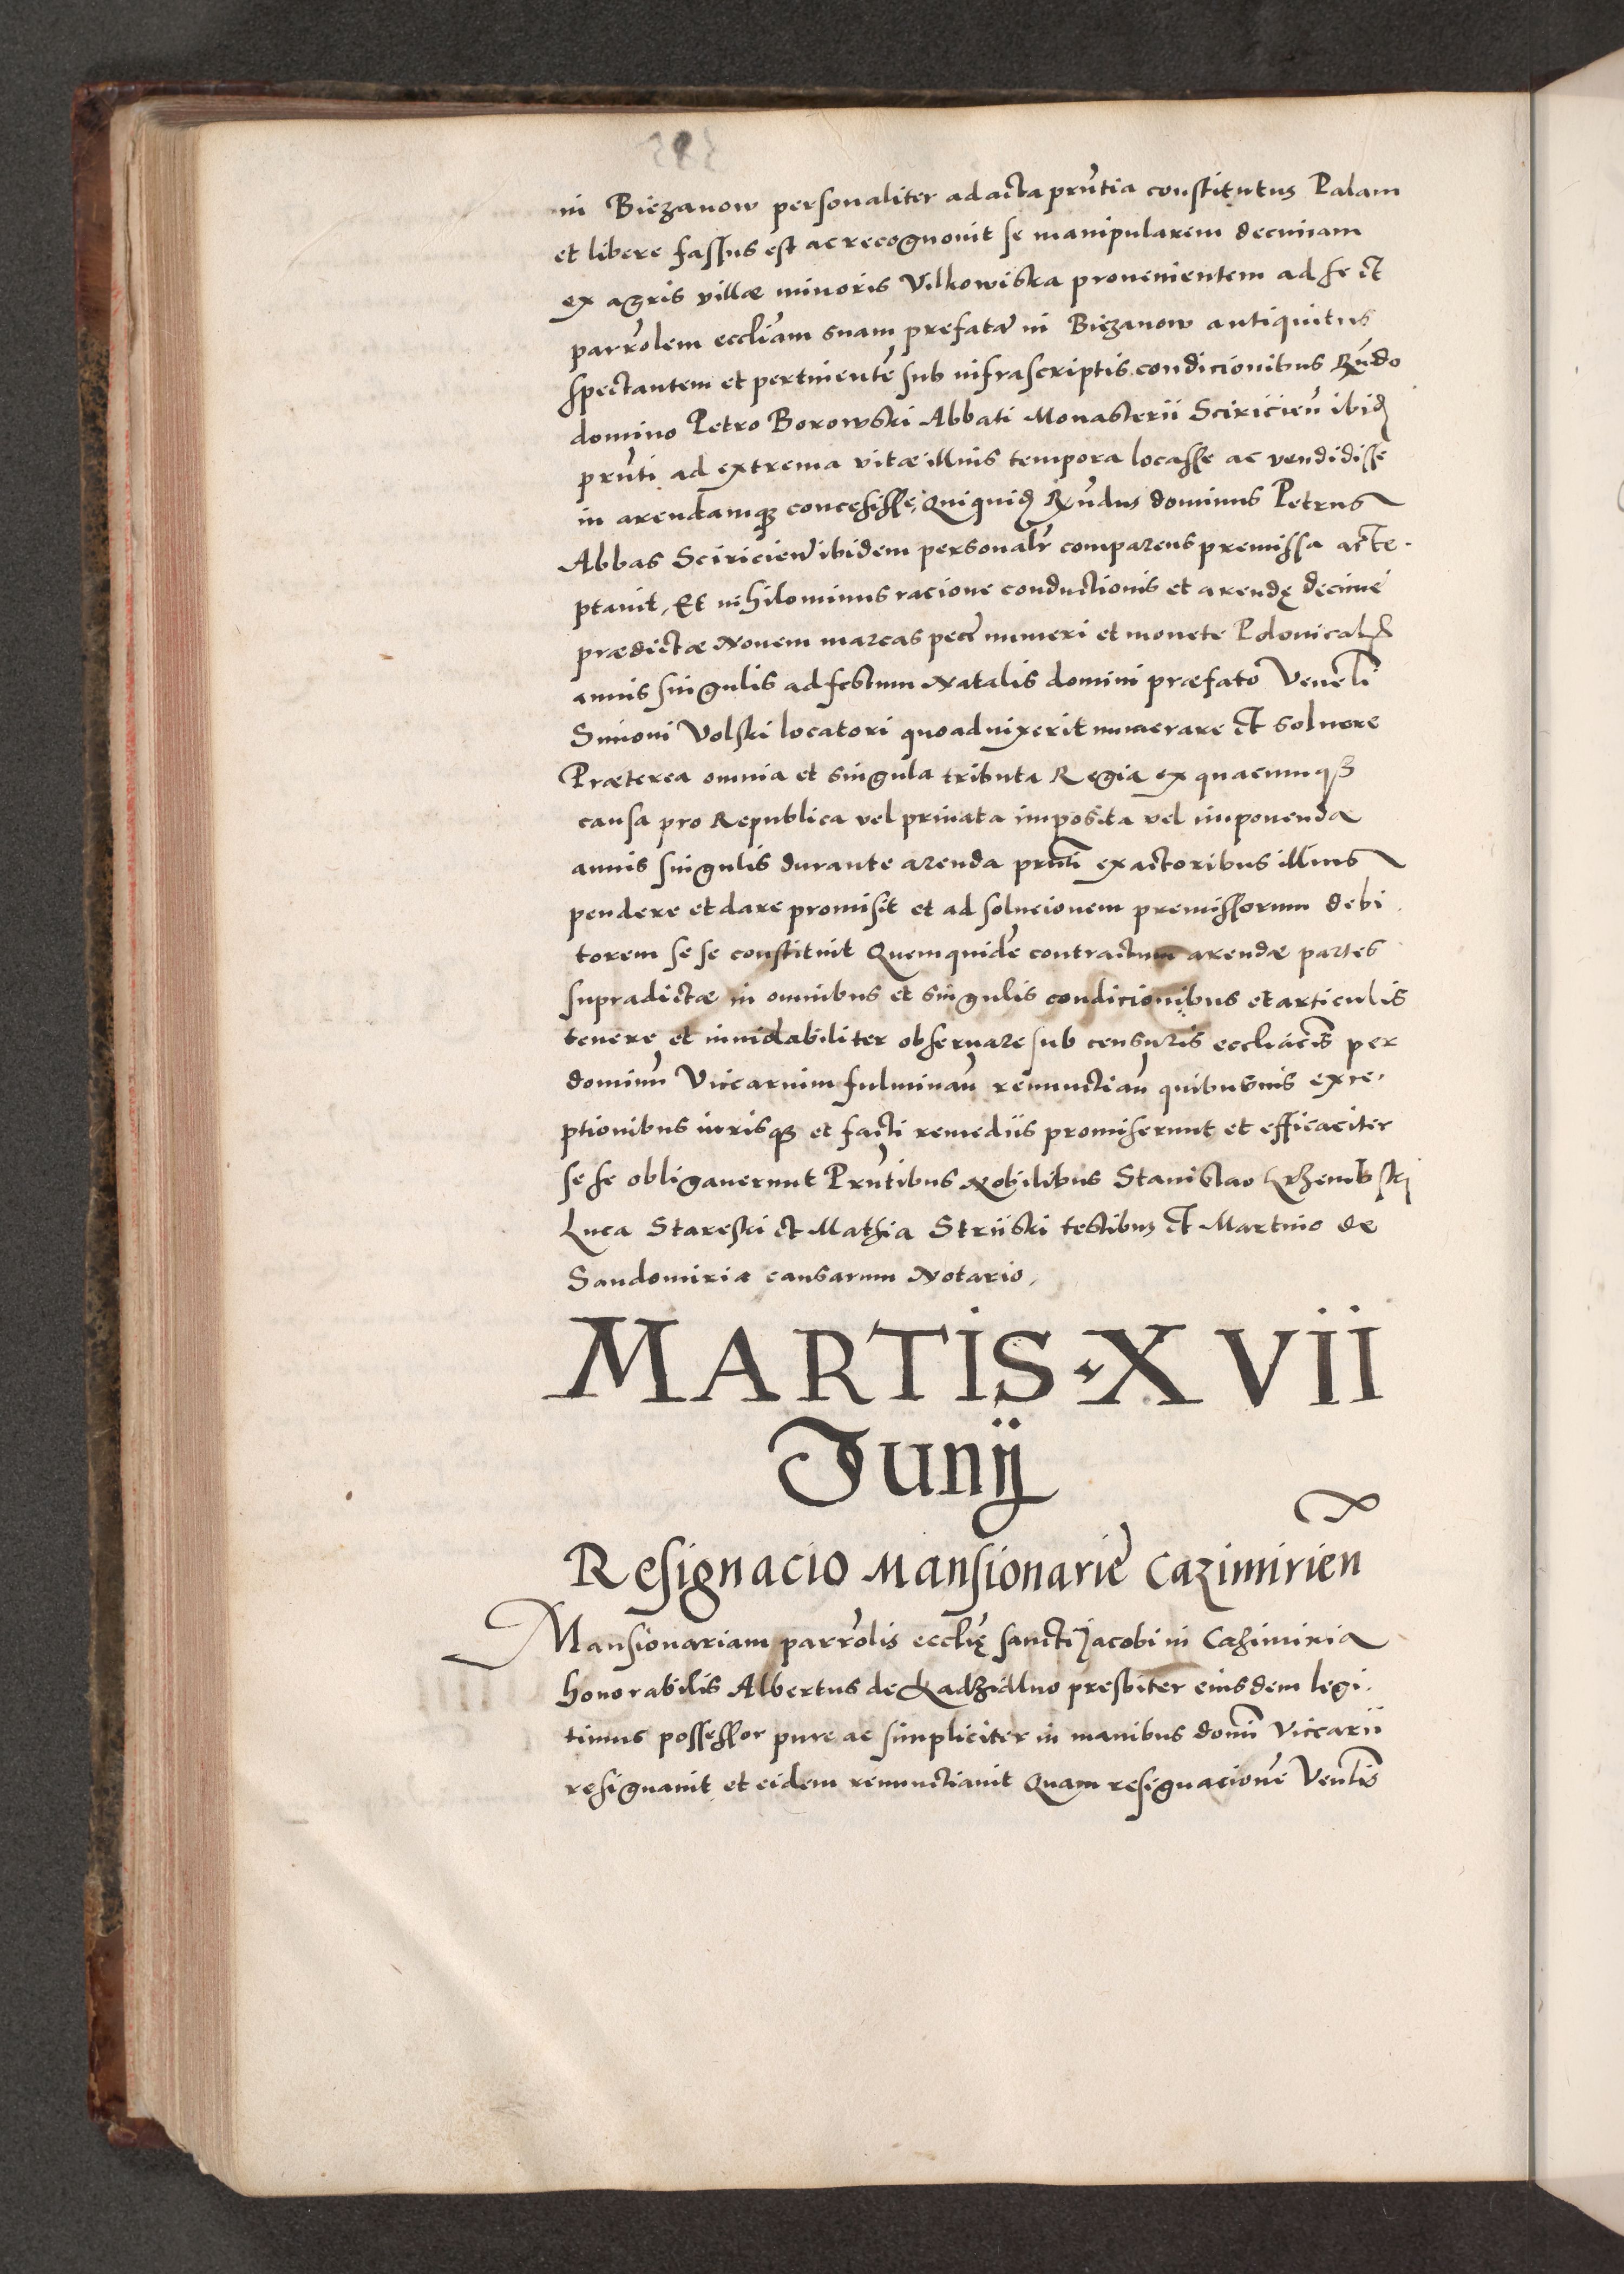 in Biezanow personaliter ad acta pրñtia constitutus Palam
et libere fassus est ac recognovit se manipularem decimam
ex agris villæ minoris Vilkowiska provenientem ad se et
parrolem eccliam suam prefatā in Biezanow antiquitus
spectantem et pertinentē sub infrascriptis condicionibus Rñdo
domino Petro Borowski Abbati Monasterii Sciricieñ ibid
prñti ad extrema vitæ illius tempora locasse ac vendidisse
in arendamqȝ concessisse, Quiquid Rñdus dominus Petrus
Abbas Sciricieñ ibidem personalr comparens premissa acce-
ptavit, Et nihilominus racione conductionis et arendę decimę
prædictæ Novem marcas pecē numeri et monete Polonical
annis singulis ad festum Natalis domini præfato Venerli
Simoni Volski locatori quoad vixerit numerare et solvere
Præterea omnia et singula tributa Regia ex quacumqȝ
causa pro Republica vel privata imposita vel imponenda
annis singulis durante arenda prñti exactoribus illius
pendere et dare promisit et ad solucionem premissorum debi
torem se se constituit Quemquidē contractum arendæ partes
supradictæ in omnibus et singulis condicionibus et articulis
tenere et inviolabiliter observare sub censuris eccliacis per
dominū Vicearium fulminañ renunctiañ quibusvis exce-
ptionibus iurisqȝ et facti remediis promiserunt et efficaciter
se se obligaverunt Prñtibus Nobilibus Stanislao
Luca Stareski et Mathia Striiski testibus et Martino de
Sandomiria causarum Notario,
MARTIS XVII
Junij
Resignacio Mansionariē Cazimirien
Mansionariam parrolis ecclię sancti Jacobi in Cazimiria
honorabilis Albertus de Kadzidlno presbiter eiusdem legi-
timus possessor pure ac simpliciter in manibus domī Vicearii
resignavit et eidem renunctiavit Quam resignacionē Venlis